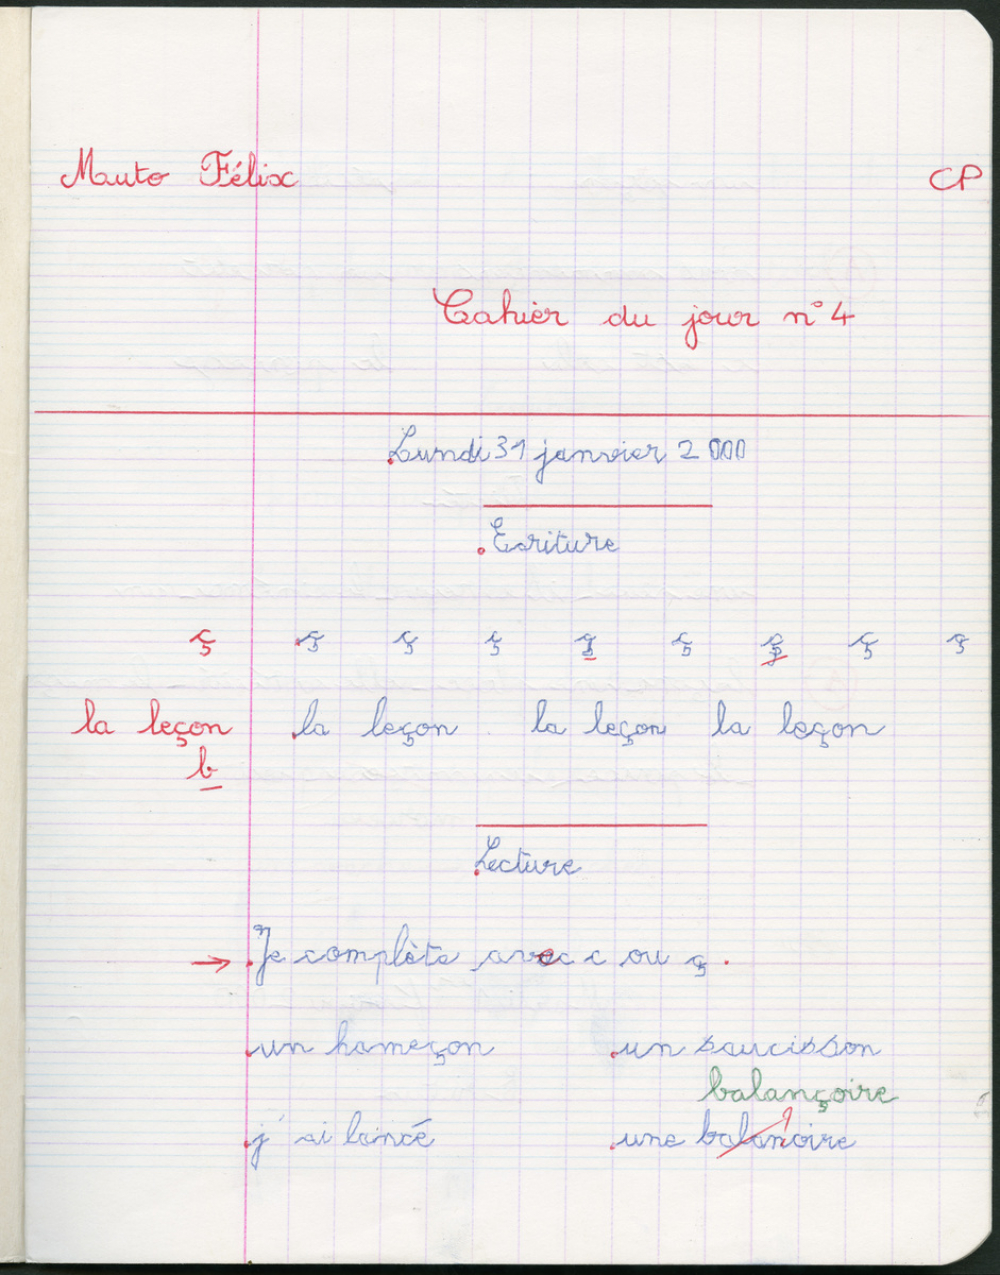 Mauto Félix CP
Cahier du jour n°4
Lundi 31 janvier 2 000
Ecriture
ç ç ç ç ç ç ç ç ç
la leçon la leçon la leçon la leçon
b
Lecture
→ Je complète avec c ou ç .
un hameçon un saucisson
balançoire
j' ai lancé une balanoire